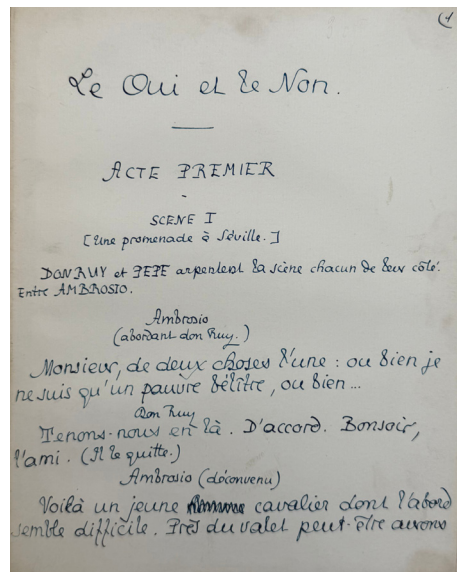 (1
Le Oui et le Non.
ACTE PREMIER
SCENE I
[Une promenade à Séville.]
DON RUY et PEPE arpentent la scène chacun de leur côté.
Entre AMBROSIO.
Ambrosio
(abordant don Ruy.)
Monsieur, de deux choses l'une : ou bien je
ne suis qu'un pauvre bélître, ou bien ...
Don Ruy
Tenons-nous en là. D'accord. Bonsoir,
l'ami. (Il le quitte.)
Ambrosio (déconvenu)
Voilà un jeune cavalier dont l'abord
semble difficile. Près du valet peut-être aurons